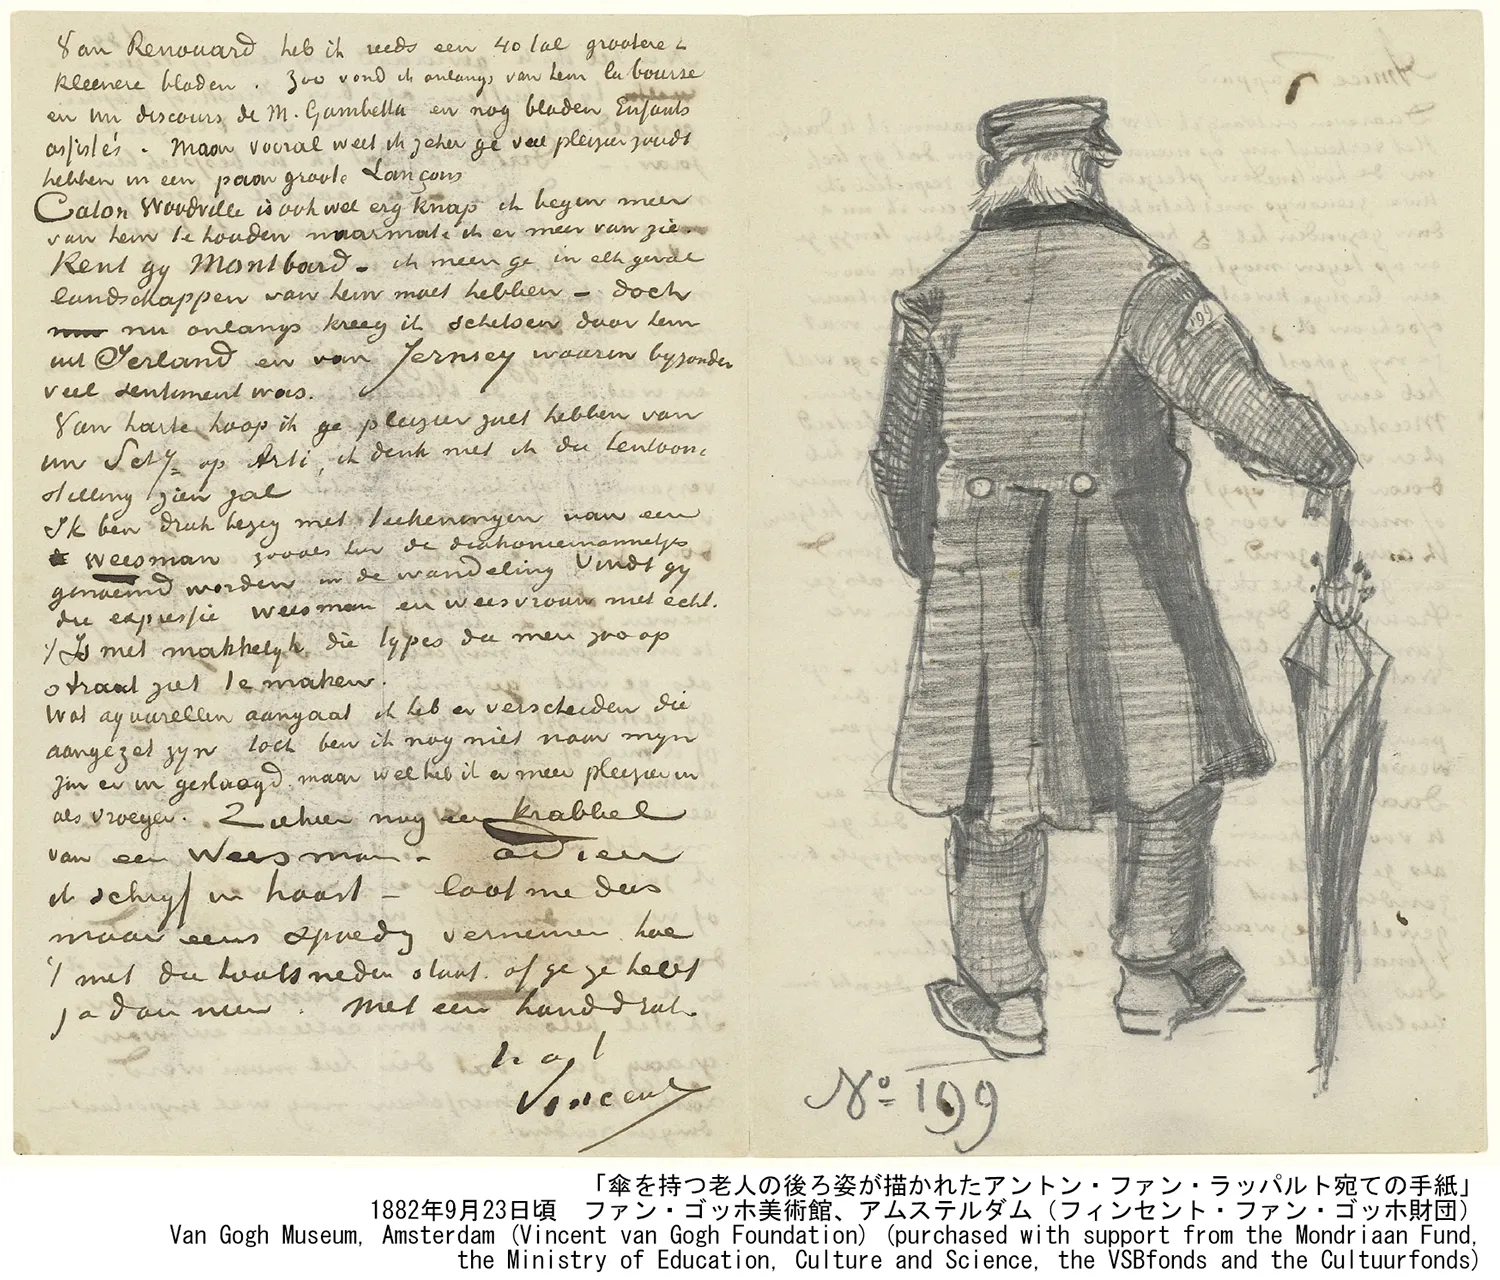 Van Renouard heb ik reeds een 40 tal grootere &
kleenere bladen. Zoo vond ik onlangs van hem la bourse
en un discours de M. Gambetta en nog bladen Enfants
assistés. Maar vooral weet ik zeker ge veel pleizier zoudt
hebben in een paar groote Lançons
Caton Woodville is ook wel erg knap ik begin meer
van hem te houden naarmate ik er meer van zie.
Kent gy Montbard – ik meen ge in elk geval
landschappen van hem moet hebben – doch
nu onlangs kreeg ik schetsen door hem
uit Ierland en van Jernsey waarin byzonder
veel sentiment was.
Van harte hoop ik ge pleizier zult hebben van
uw Schij op Arti, ik denk niet ik die tentoon-
stelling zien zal
Ik ben druk bezig met teekeningen van een
weesman zooals hier de diakoniemannetjes
genoemd worden in de wandeling Vindt gy
die expressie weesman en weesvrouw niet echt.
't Is niet makkelyk die types die men zoo op
straat ziet te maken.
Wat aquarellen aangaat ik heb er verscheiden die
aangezet zyn toch ben ik nog niet naar myn
zin er in geslaagd maar wel heb ik er meer pleizier in
als vroeger. Ziehier nog een krabbel
van een Weesman – adieu
ik schryf in haast – laat me dus
maar eens spoedig vernemen hoe
't met die houtsneden staat of ge ze hebt
ja dan neen. Met een handdruk
t. à t.
Vincent
199
No 199
「傘を持つ老人の後ろ姿が描かれたアントン・ファン・ラッパルト宛ての手紙」
1882年9月23日頃 ファン・ゴッホ美術館、アムステルダム（フィンセント・ファン・ゴッホ財団）
Van Gogh Museum, Amsterdam (Vincent van Gogh Foundation) (purchased with support from the Mondriaan Fund,
the Ministry of Education, Culture and Science, the VSBfonds and the Cultuurfonds)